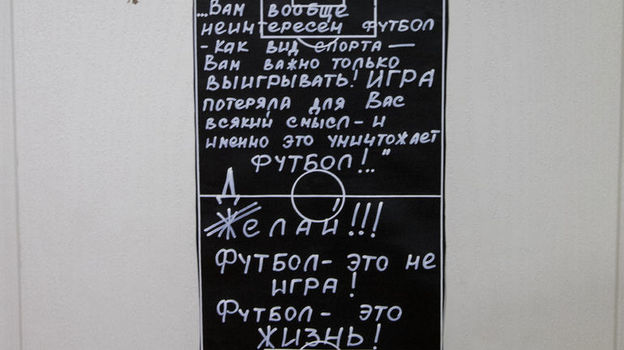 ...Вам вообще
неинтересен футбол
- Как вид спорта —
Вам важно только
выигрывать! Игра
потеряла для Вас
всякий смысл - и
именно это уничтожает
футбол!.."
Д
Желай!!!
Футбол - это не
игра!
Футбол - это
жизнь!